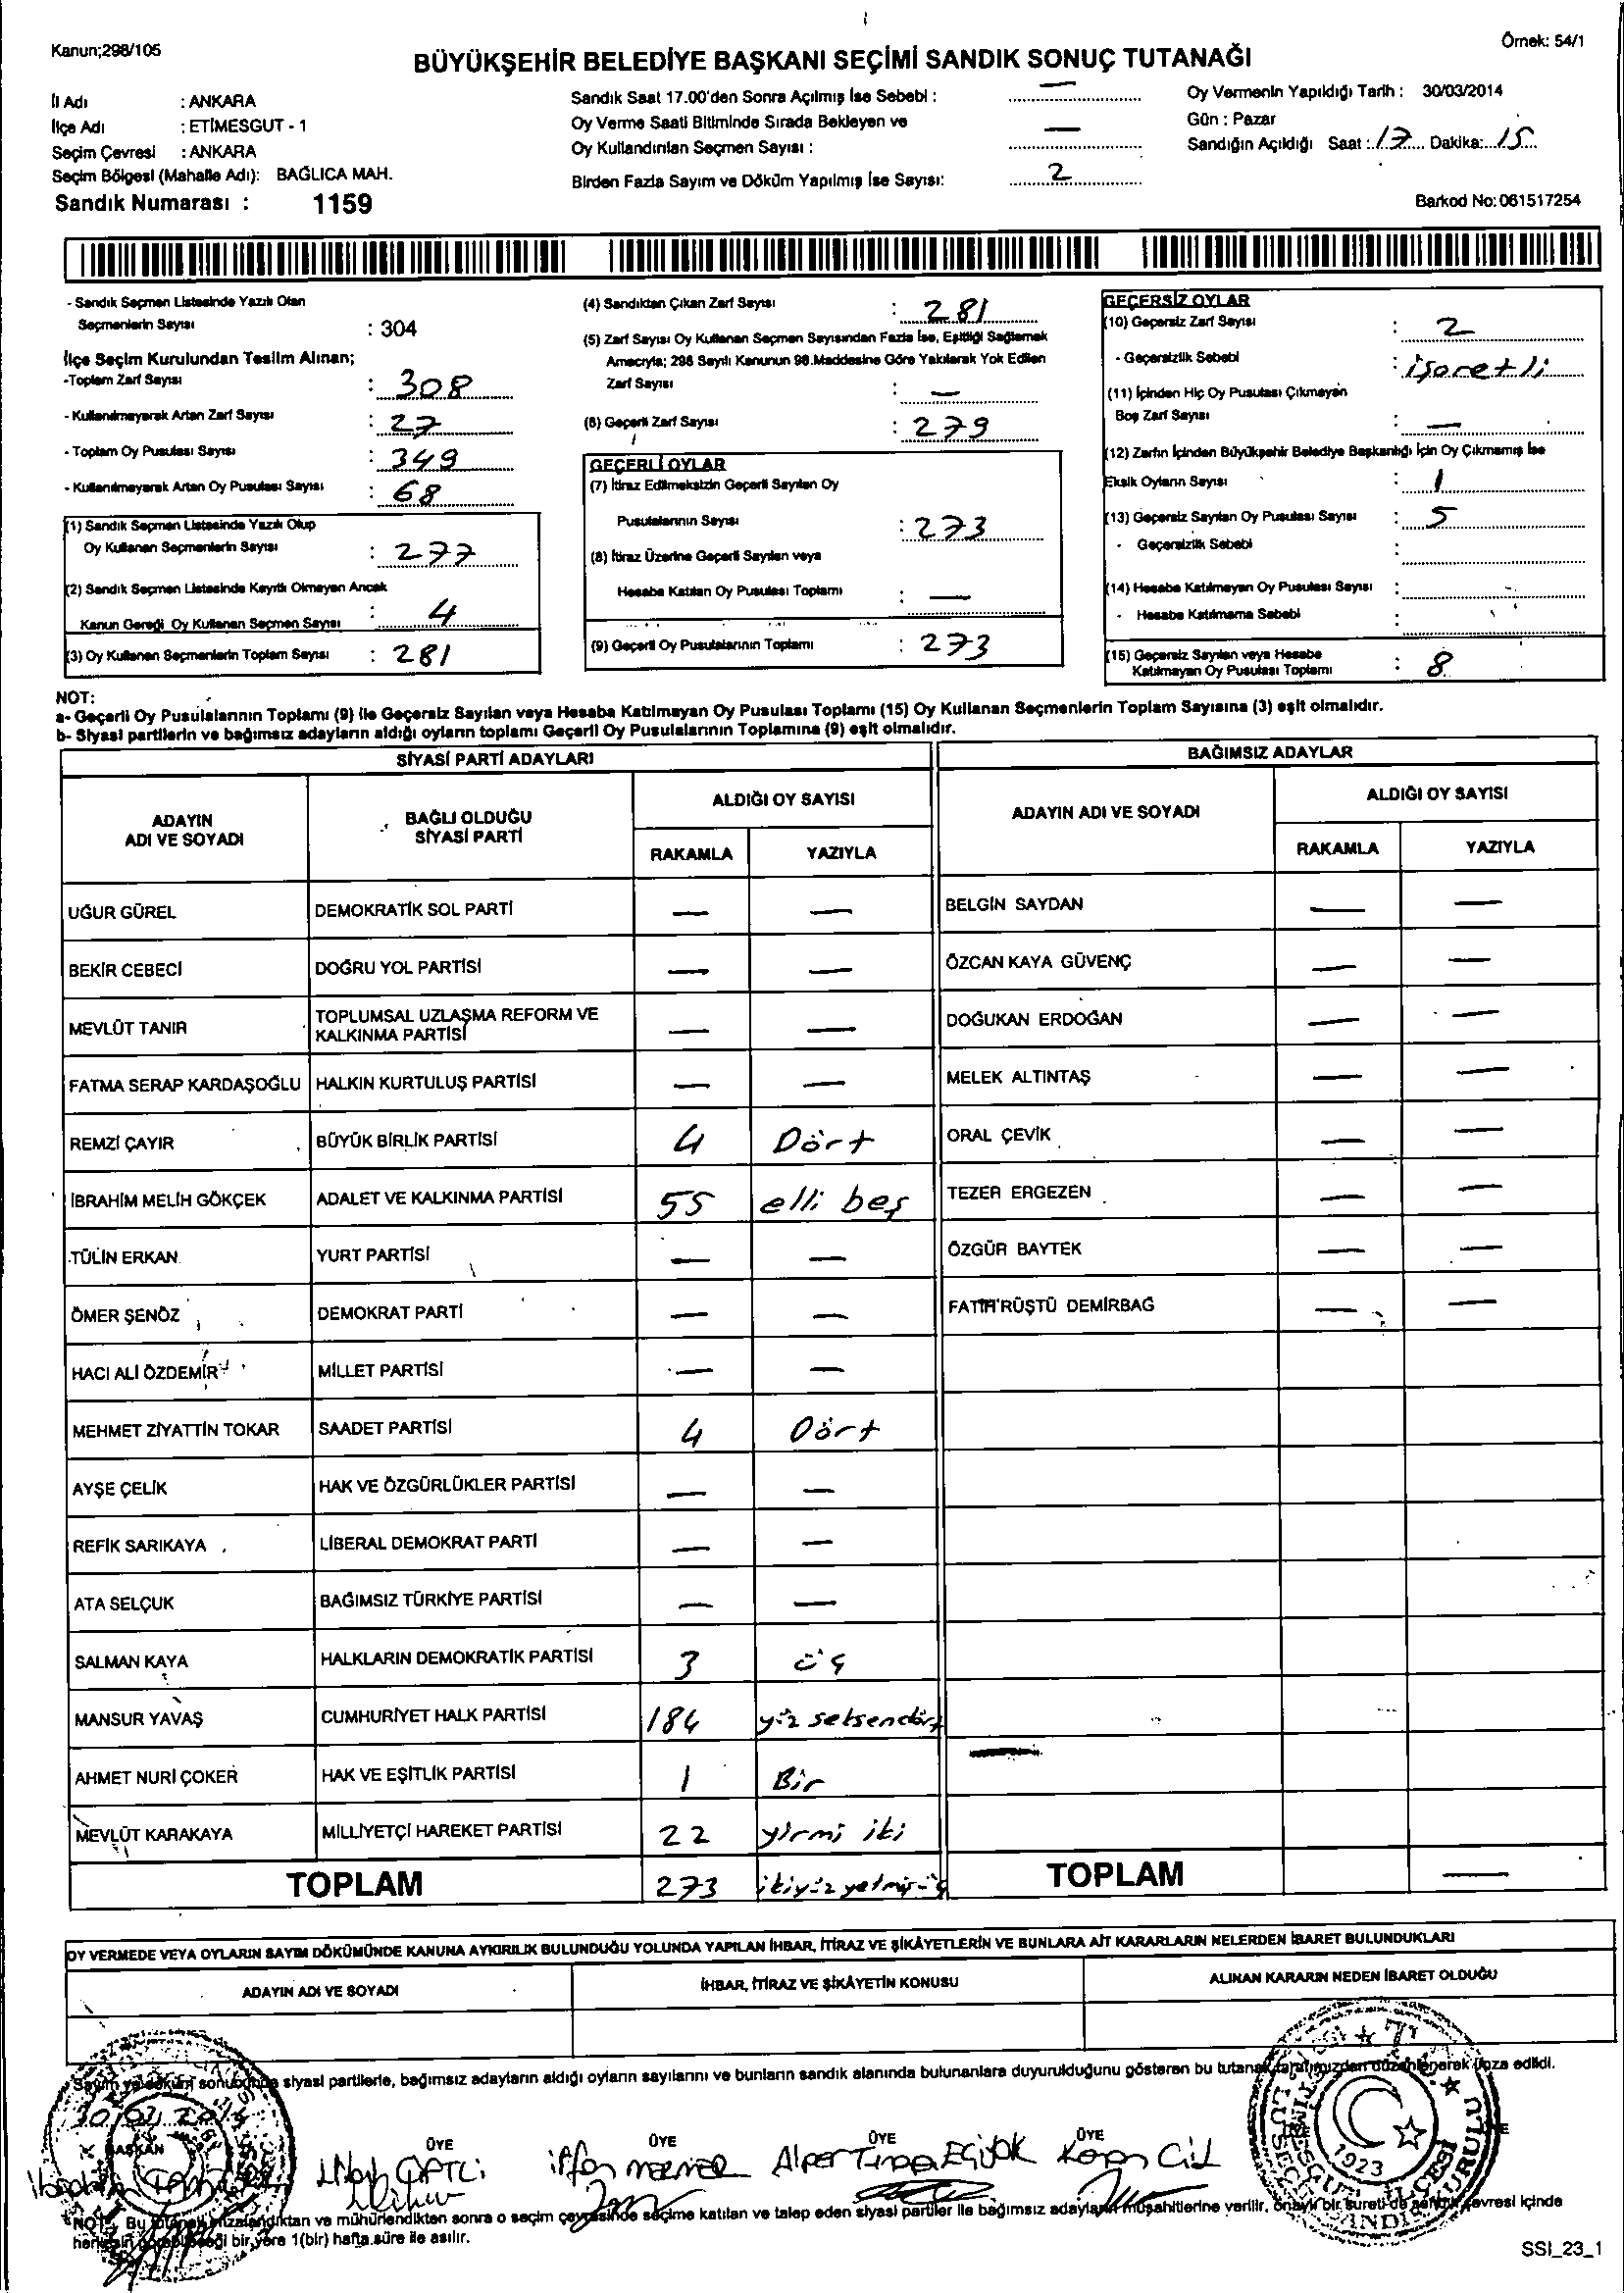 Kanun;298/105
Örnek: 54/1
BÜYÜKŞEHİR BELEDİYE BAŞKANI SEÇİMİ SANDIK SONUÇ TUTANAĞI
İl Adı : ANKARA
İlçe Adı : ETİMESGUT - 1
Seçim Çevresi : ANKARA
Seçim Bölgesi (Mahalle Adı): BAĞLICA MAH.
Sandık Numarası : 1159
Sandık Saat 17.00'den Sonra Açılmış İse Sebebi : —
Oy Verme Saati Bitiminde Sırada Bekleyen ve
Oy Kullandırılan Seçmen Sayısı : —
Birden Fazla Sayım ve Döküm Yapılmış İse Sayısı: 2
Oy Vermenin Yapıldığı Tarih : 30/03/2014
Gün : Pazar
Sandığın Açıldığı Saat : 17 Dakika: 15
Barkod No: 061517254
- Sandık Seçmen Listesinde Yazılı Olan
Seçmenlerin Sayısı : 304
İlçe Seçim Kurulundan Teslim Alınan;
-Toplam Zarf Sayısı : 308
- Kullanılmayarak Artan Zarf Sayısı : 27
- Toplam Oy Pusulası Sayısı : 349
- Kullanılmayarak Artan Oy Pusulası Sayısı : 68
(1) Sandık Seçmen Listesinde Yazılı Olup
Oy Kullanan Seçmenlerin Sayısı : 277
(2) Sandık Seçmen Listesinde Kayıtlı Olmayan Ancak
Kanun Gereği Oy Kullanan Seçmen Sayısı : 4
(3) Oy Kullanan Seçmenlerin Toplam Sayısı : 281
(4) Sandıktan Çıkan Zarf Sayısı : 281
(5) Zarf Sayısı Oy Kullanan Seçmen Sayısından Fazla İse, Eşitliği Sağlamak
Amacıyla; 298 Sayılı Kanunun 98.Maddesine Göre Yakılarak Yok Edilen
Zarf Sayısı : —
(6) Geçerli Zarf Sayısı : 279
GEÇERLİ OYLAR
(7) İtiraz Edilmeksizin Geçerli Sayılan Oy
Pusulalarının Sayısı : 273
(8) İtiraz Üzerine Geçerli Sayılan veya
Hesaba Katılan Oy Pusulası Toplamı : —
(9) Geçerli Oy Pusulalarının Toplamı : 273
GEÇERSİZ OYLAR
(10) Geçersiz Zarf Sayısı : 2
- Geçersizlik Sebebi : işaretli
(11) İçinden Hiç Oy Pusulası Çıkmayan
Boş Zarf Sayısı : —
(12) Zarfın İçinden Büyükşehir Belediye Başkanlığı İçin Oy Çıkmamış İse
Eksik Oyların Sayısı : 1
(13) Geçersiz Sayılan Oy Pusulası Sayısı : 5
- Geçersizlik Sebebi :
(14) Hesaba Katılmayan Oy Pusulası Sayısı :
- Hesaba Katılmama Sebebi :
(15) Geçersiz Sayılan veya Hesaba
Katılmayan Oy Pusulası Toplamı : 8
NOT:
a- Geçerli Oy Pusulalarının Toplamı (9) ile Geçersiz Sayılan veya Hesaba Katılmayan Oy Pusulası Toplamı (15) Oy Kullanan Seçmenlerin Toplam Sayısına (3) eşit olmalıdır.
b- Siyasi partilerin ve bağımsız adayların aldığı oyların toplamı Geçerli Oy Pusulalarının Toplamına (9) eşit olmalıdır.
SİYASİ PARTİ ADAYLARI
ADAYIN ADI VE SOYADI
BAĞLI OLDUĞU SİYASİ PARTİ
ALDIĞI OY SAYISI
RAKAMLA YAZIYLA
UĞUR GÜREL DEMOKRATİK SOL PARTİ — —
BEKİR CEBECİ DOĞRU YOL PARTİSİ — —
MEVLÜT TANIR TOPLUMSAL UZLAŞMA REFORM VE KALKINMA PARTİSİ — —
FATMA SERAP KARDAŞOĞLU HALKIN KURTULUŞ PARTİSİ — —
REMZİ ÇAYIR BÜYÜK BİRLİK PARTİSİ 4 Dört
İBRAHİM MELİH GÖKÇEK ADALET VE KALKINMA PARTİSİ 55 elli beş
TÜLİN ERKAN YURT PARTİSİ — —
ÖMER ŞENÖZ DEMOKRAT PARTİ — —
HACI ALİ ÖZDEMİR MİLLET PARTİSİ — —
MEHMET ZİYATTİN TOKAR SAADET PARTİSİ 4 Dört
AYŞE ÇELİK HAK VE ÖZGÜRLÜKLER PARTİSİ — —
REFİK SARIKAYA LİBERAL DEMOKRAT PARTİ — —
ATA SELÇUK BAĞIMSIZ TÜRKİYE PARTİSİ — —
SALMAN KAYA HALKLARIN DEMOKRATİK PARTİSİ 3 üç
MANSUR YAVAŞ CUMHURİYET HALK PARTİSİ 184 yüz seksendört
AHMET NURİ ÇOKER HAK VE EŞİTLİK PARTİSİ 1 Bir
MEVLÜT KARAKAYA MİLLİYETÇİ HAREKET PARTİSİ 22 yirmi iki
TOPLAM 273 ikiyüz yetmiş üç
BAĞIMSIZ ADAYLAR
ADAYIN ADI VE SOYADI
ALDIĞI OY SAYISI
RAKAMLA YAZIYLA
BELGİN SAYDAN — —
ÖZCAN KAYA GÜVENÇ — —
DOĞUKAN ERDOĞAN — —
MELEK ALTINTAŞ — —
ORAL ÇEVİK — —
TEZER ERGEZEN — —
ÖZGÜR BAYTEK — —
FATİH RÜŞTÜ DEMİRBAĞ — —
TOPLAM —
OY VERMEDE VEYA OYLARIN SAYIM DÖKÜMÜNDE KANUNA AYKIRILIK BULUNDUĞU YOLUNDA YAPILAN İHBAR, İTİRAZ VE ŞİKÂYETLERİN VE BUNLARA AİT KARARLARIN NELERDEN İBARET BULUNDUKLARI
ADAYIN ADI VE SOYADI İHBAR, İTİRAZ VE ŞİKÂYETİN KONUSU ALINAN KARARIN NEDEN İBARET OLDUĞU
Sayım ve döküm sonucunda siyasi partilerle, bağımsız adayların aldığı oyların sayılarını ve bunların sandık alanında bulunanlara duyurulduğunu gösteren bu tutanak tarafımızdan düzenlenerek imza edildi.
30/03/2014
BAŞKAN ÜYE ÜYE ÜYE ÜYE
irfan Alper
1923
NOT: Bu tutanak imzalandıktan ve mühürlendikten sonra o seçim çevresinde seçime katılan ve talep eden siyasi partiler ile bağımsız adayların müşahitlerine verilir, onaylı bir sureti de sandık çevresi içinde
herkesin görebileceği bir yere 1(bir) hafta süre ile asılır.
SSI_23_1